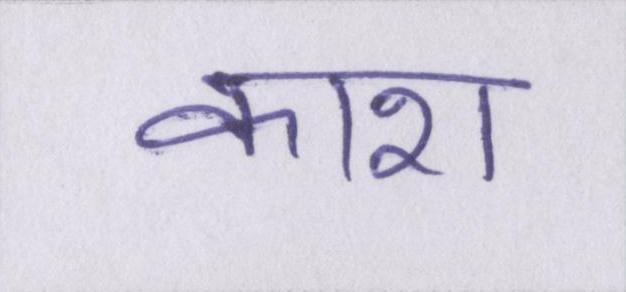 काश